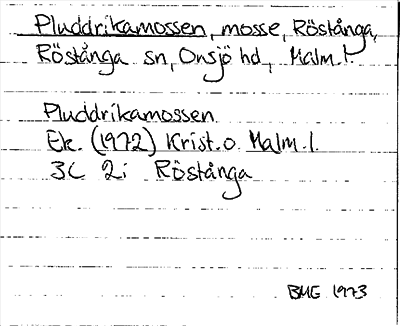 Pluddrikamossen, mosse, Röstånga,
Röstånga sn, Onsjö hd, Malm.l.
Pluddrikamossen
Ek. (1972) Krist.o. Malm.l.
3C 2i Röstånga
BME 1973